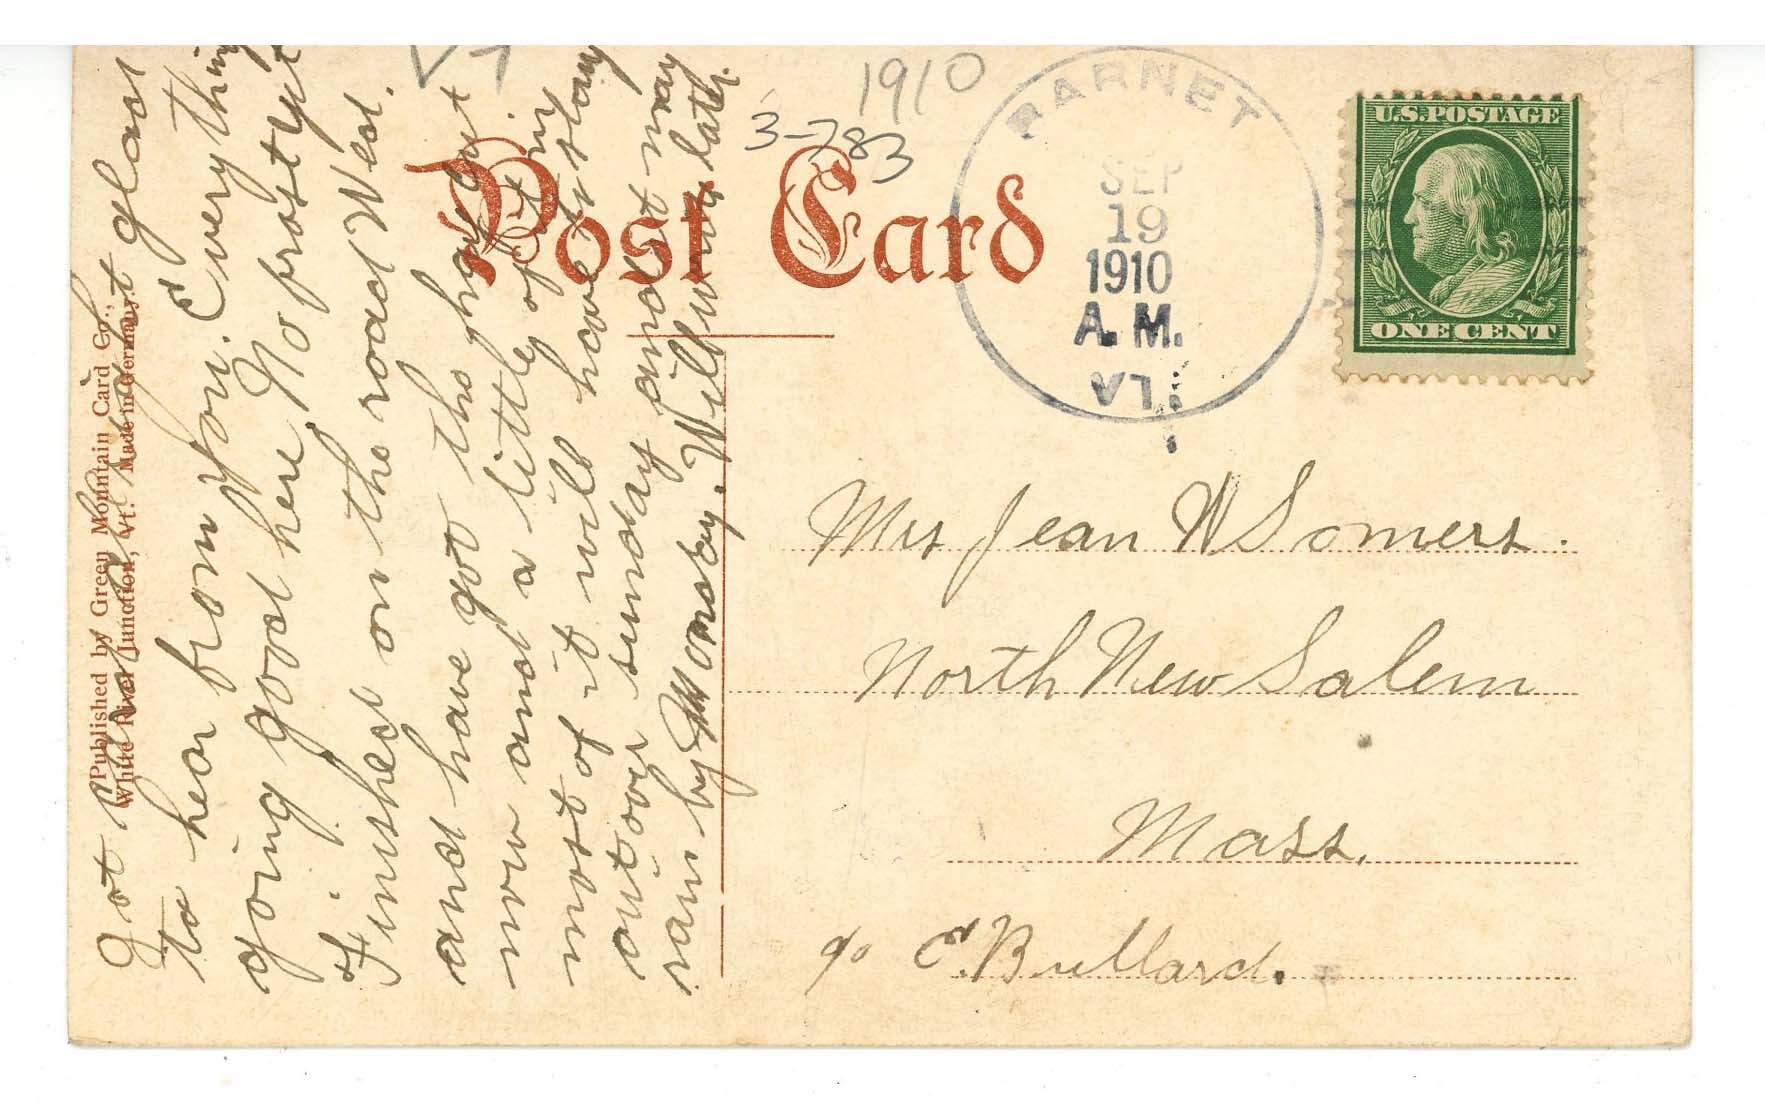 Got card last night glad
to hear from you. Everything
going good here No frost yet
Finished on the road Wed.
and have got the hay cut
now and a little of it in
most of it will have to stay
out over sunday and it may
rain by Monday. Will write later.
Published by Green Mountain Card Co.,
White River Junction, Vt. Made in Germany.
VT
1910
3-783
Post Card
BARNET
SEP
19
1910
A.M.
VT.
U.S. POSTAGE
ONE CENT
Mrs Jean W Somers.
North New Salem
Mass.
c/o E. Bullard.